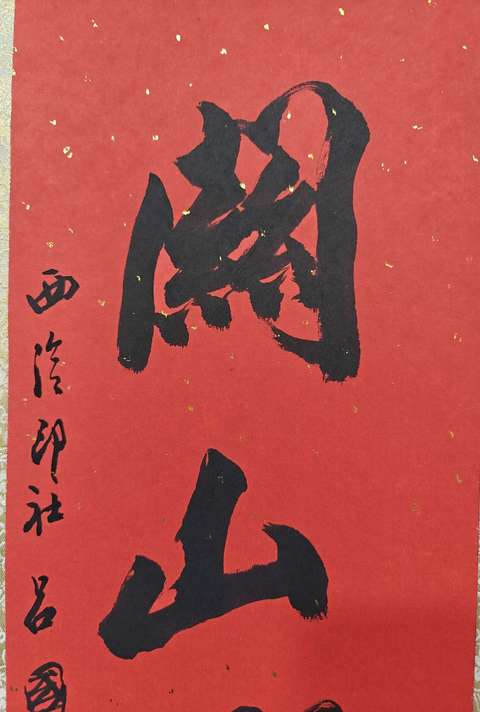 關山
西泠印社呂國